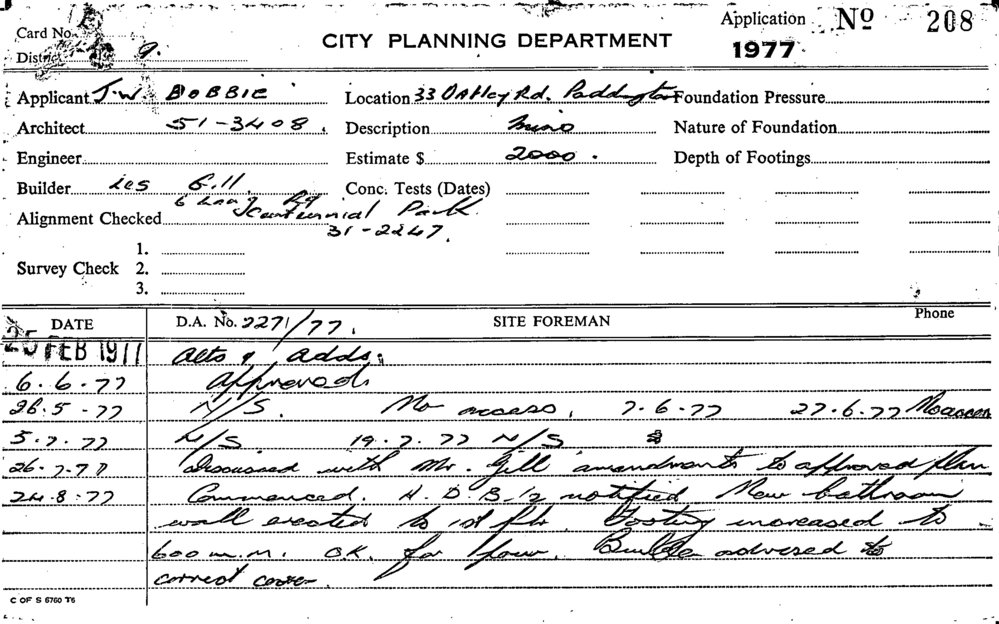 Card No.
District 9.
CITY PLANNING DEPARTMENT
Application No 208
1977
Applicant J.W. BOBBIE
Location 33 Oatley Rd. Paddington
Foundation Pressure
Architect 51-3408.
Description
Nature of Foundation
Engineer
Estimate $ 2000.
Depth of Footings
Builder Les Gill
Conc. Tests (Dates)
6 Lang Rd
Alignment Checked Centennial Park
31-2247.
Survey Check 1.
2.
3.
DATE D.A. No. 2271/77. SITE FOREMAN Phone
25 FEB 1977 Alts & adds.
6.6.77 Approved
26.5-77 N/S. No access. 7-6-77 27.6.77 No access
5.7.77 N/S 19.7.77 N/S
26-7-77 Discussed with Mr. Gill amendments to approved plan
24.8-77 Commenced. notified New bathroom
wall erected to 1st flr. Footing increased to
600 m.m. O.K. for pour. Builder advised to
correct cover.
C OF S 6760 T6